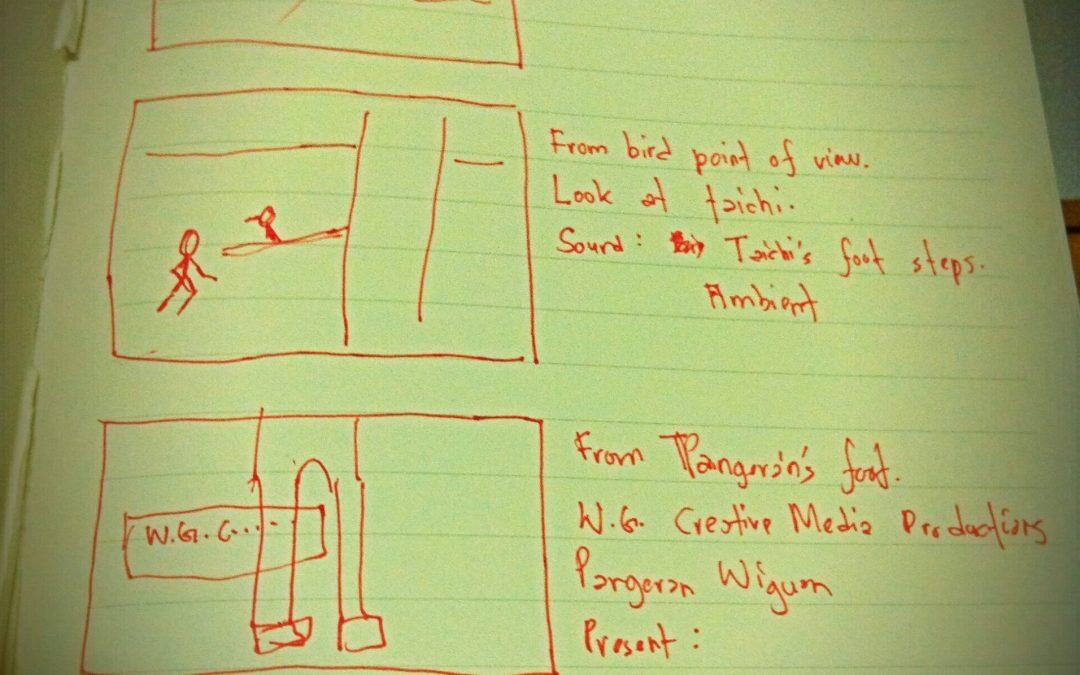 From bird point of view.
Look at taichi.
Sound: Taichi's foot steps.
Ambient
W.G. C....
From Pangeran's foot.
W.G. Creative Media Productions
Pangeran Wigum
Present :